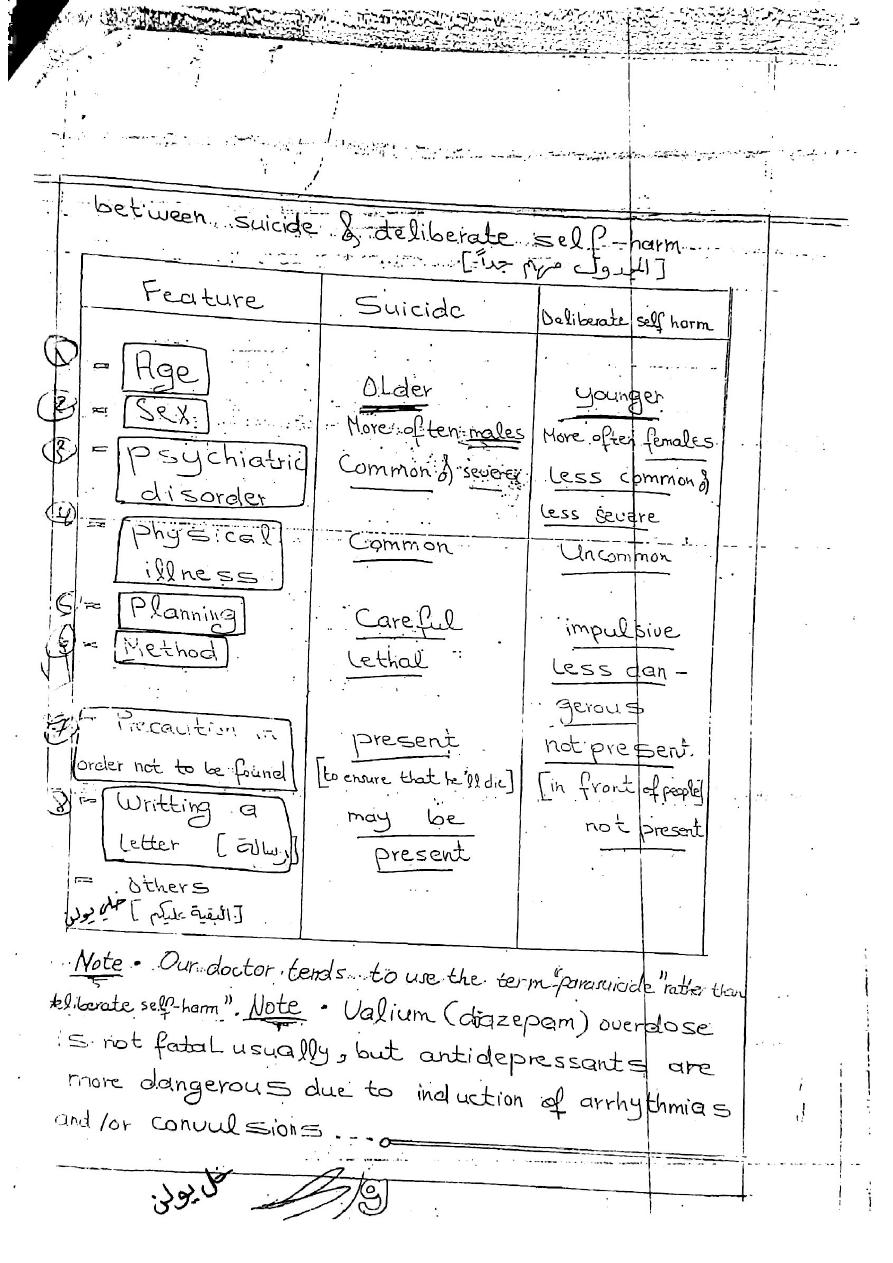 between suicide & deliberate self-harm
[الجدول مهم جداً]
Feature Suicide Deliberate self harm
1 = Age Older younger
2 = Sex More often males More often females
3 = psychiatric disorder Common & severe less common & less severe
4 = physical illness Common Uncommon
5 = Planning Careful impulsive
6 = Method lethal less dan-
gerous
7 = Precaution in present not present
order not to be found [to ensure that he'll die] [in front of people]
8 = Writting a may be not present
letter [رسالة] present
= others
[البقية عليكم]
Note • Our doctor tends to use the term "parasuicide" rather than
deliberate self-harm". Note • Valium (diazepam) overdose
is not fatal usually, but antidepressants are
more dangerous due to induction of arrhythmias
and/or convulsions ...